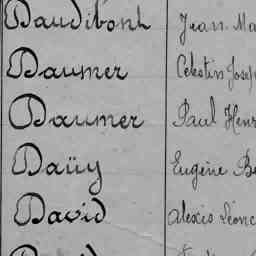 Daudibonh Jean Ma
Daumer Celestin Josep
Daumer Paul Henr
Daüy Eugène Be
David Alexis Léonc